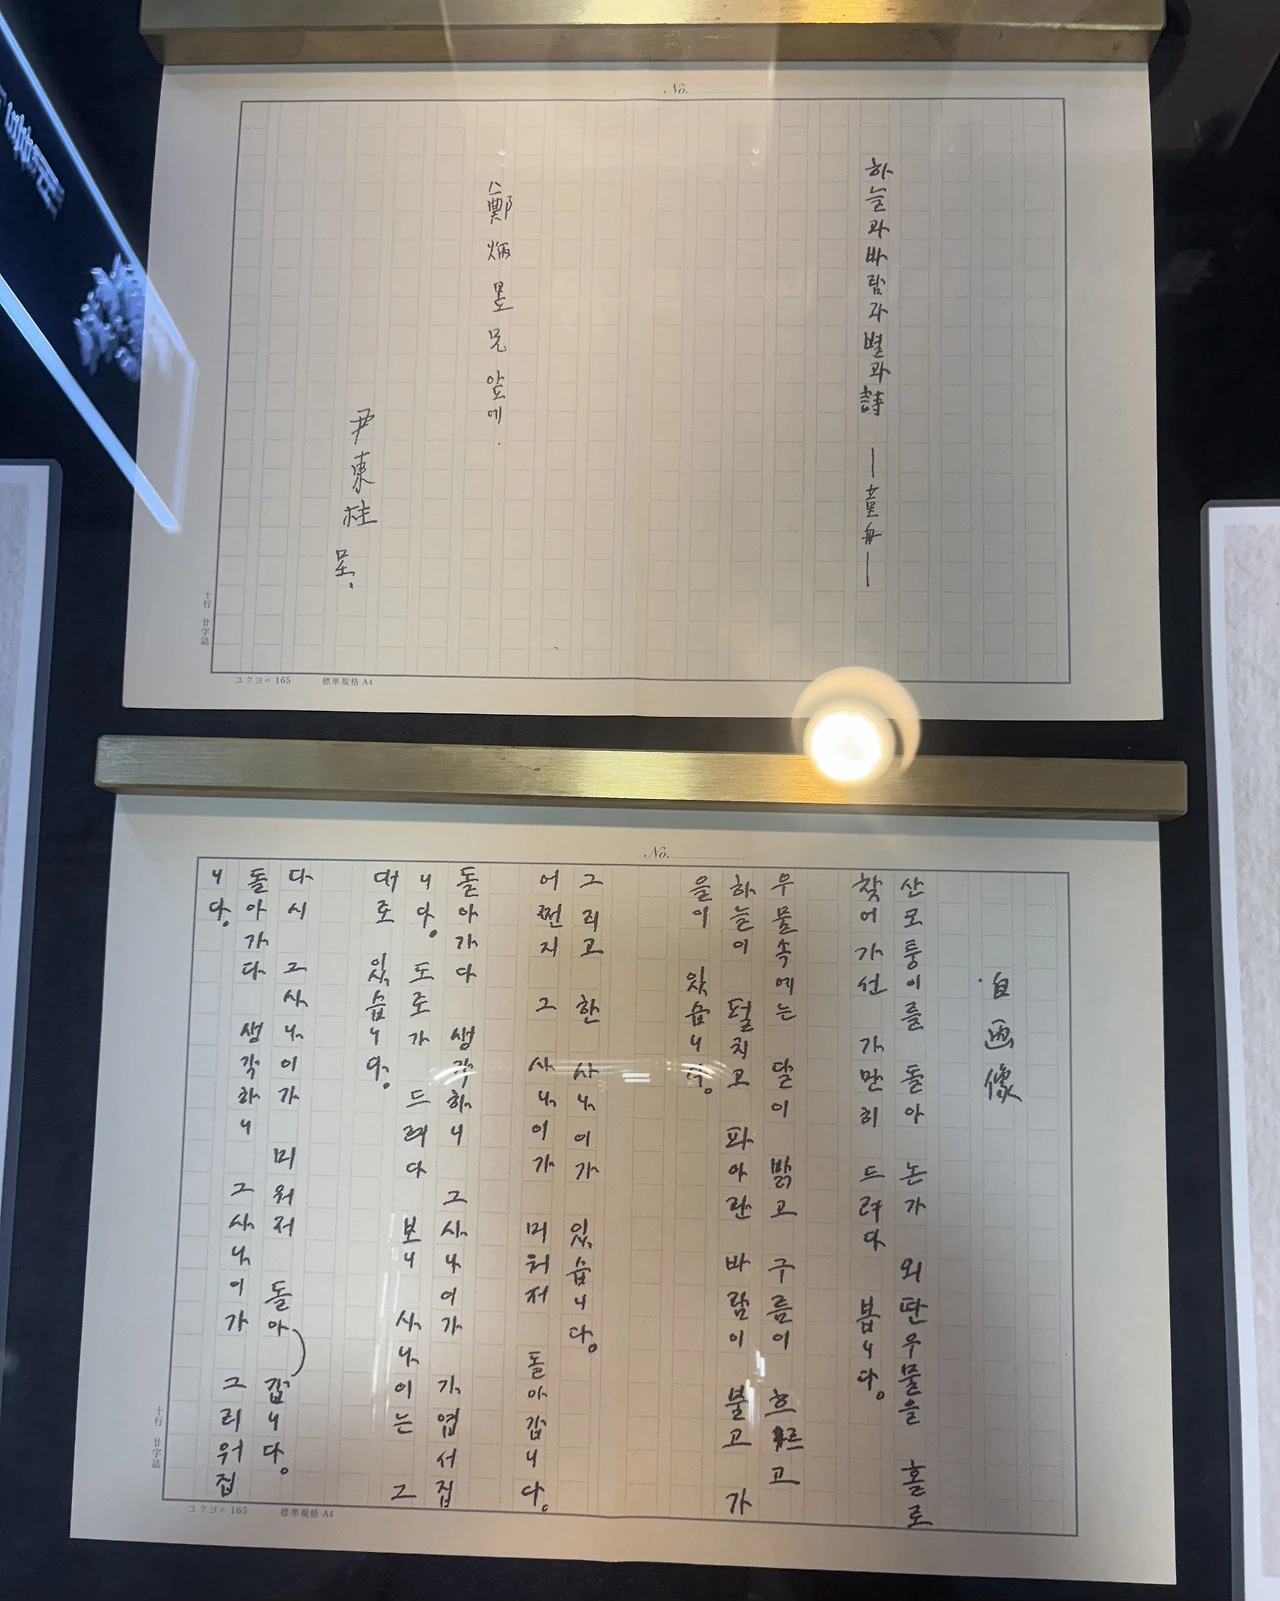 No.
하늘과바람과별과詩 —童舟—
鄭炳昱兄 앞에.
尹東柱 呈.
十行 廿字詰
コクヨ 165 標準規格 A4
No.
自画像
산모퉁이를 돌아 논가 외딴우물을 홀로
찾어가선 가만히 드려다 봅니다。
우물속에는 달이 밝고 구름이 흐르고
하늘이 펼치고 파아란 바람이 불고 가
을이 있습니다。
그리고 한 사나이가 있습니다。
어쩐지 그 사나이가 미워저 돌아갑니다。
돌아가다 생각하니 그사나이가 가엽서집
니다。 도로가 드려다 보니 사나이는 그
대로 있습니다。
다시 그사나이가 미워저 돌아 갑니다。
돌아가다 생각하니 그사나이가 그리워집
니다。
十行 廿字詰
コクヨ 165 標準規格 A4